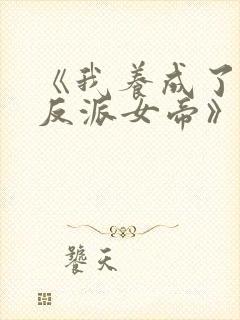 《我养成了
反派女帝》
饕天